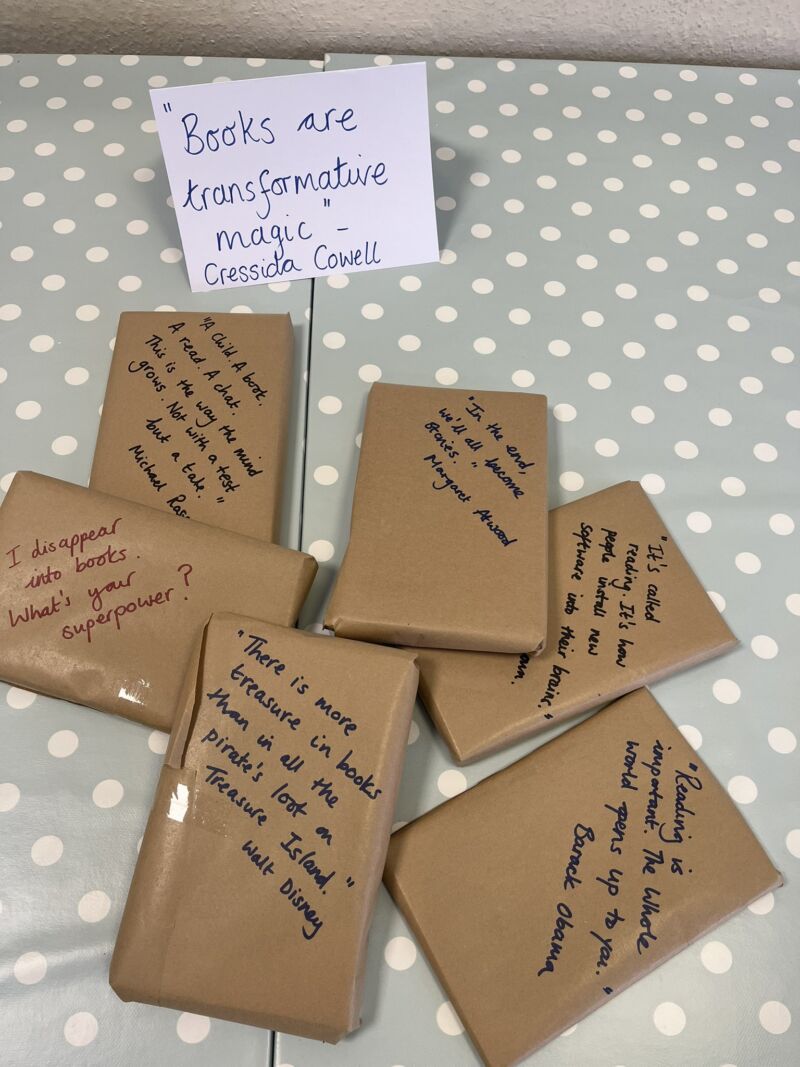 "Books are
transformative
magic" -
Cressida Cowell
"A Child. A book.
A read. A chat.
This is the way the mind
grows. Not with a test
but a tale."
Michael
"In the end,
we'll all become
stories."
Margaret Atwood
I disappear
into books.
What's your
superpower?
"It's called
reading. It's how
people install new
software into their brains."
"There is more
treasure in books
than in all the
pirate's loot on
Treasure Island."
Walt Disney
"Reading is
important. The Whole
world opens up to you."
Barack Obama